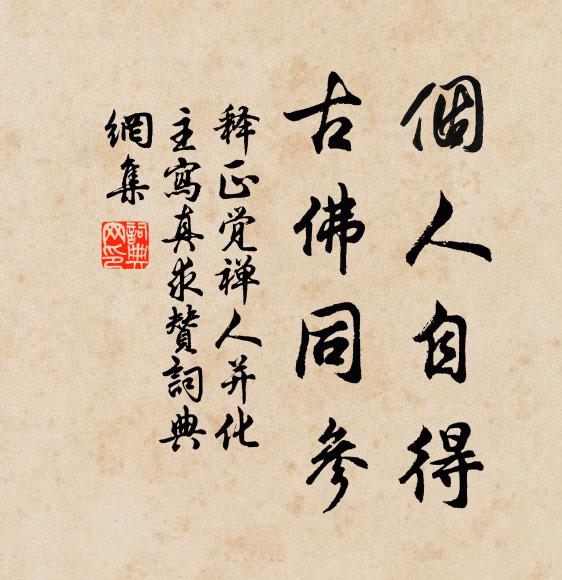 個人自得
古佛同參
释正觉禅人并化
主寫真求贊詞典
網集
詞典
网印